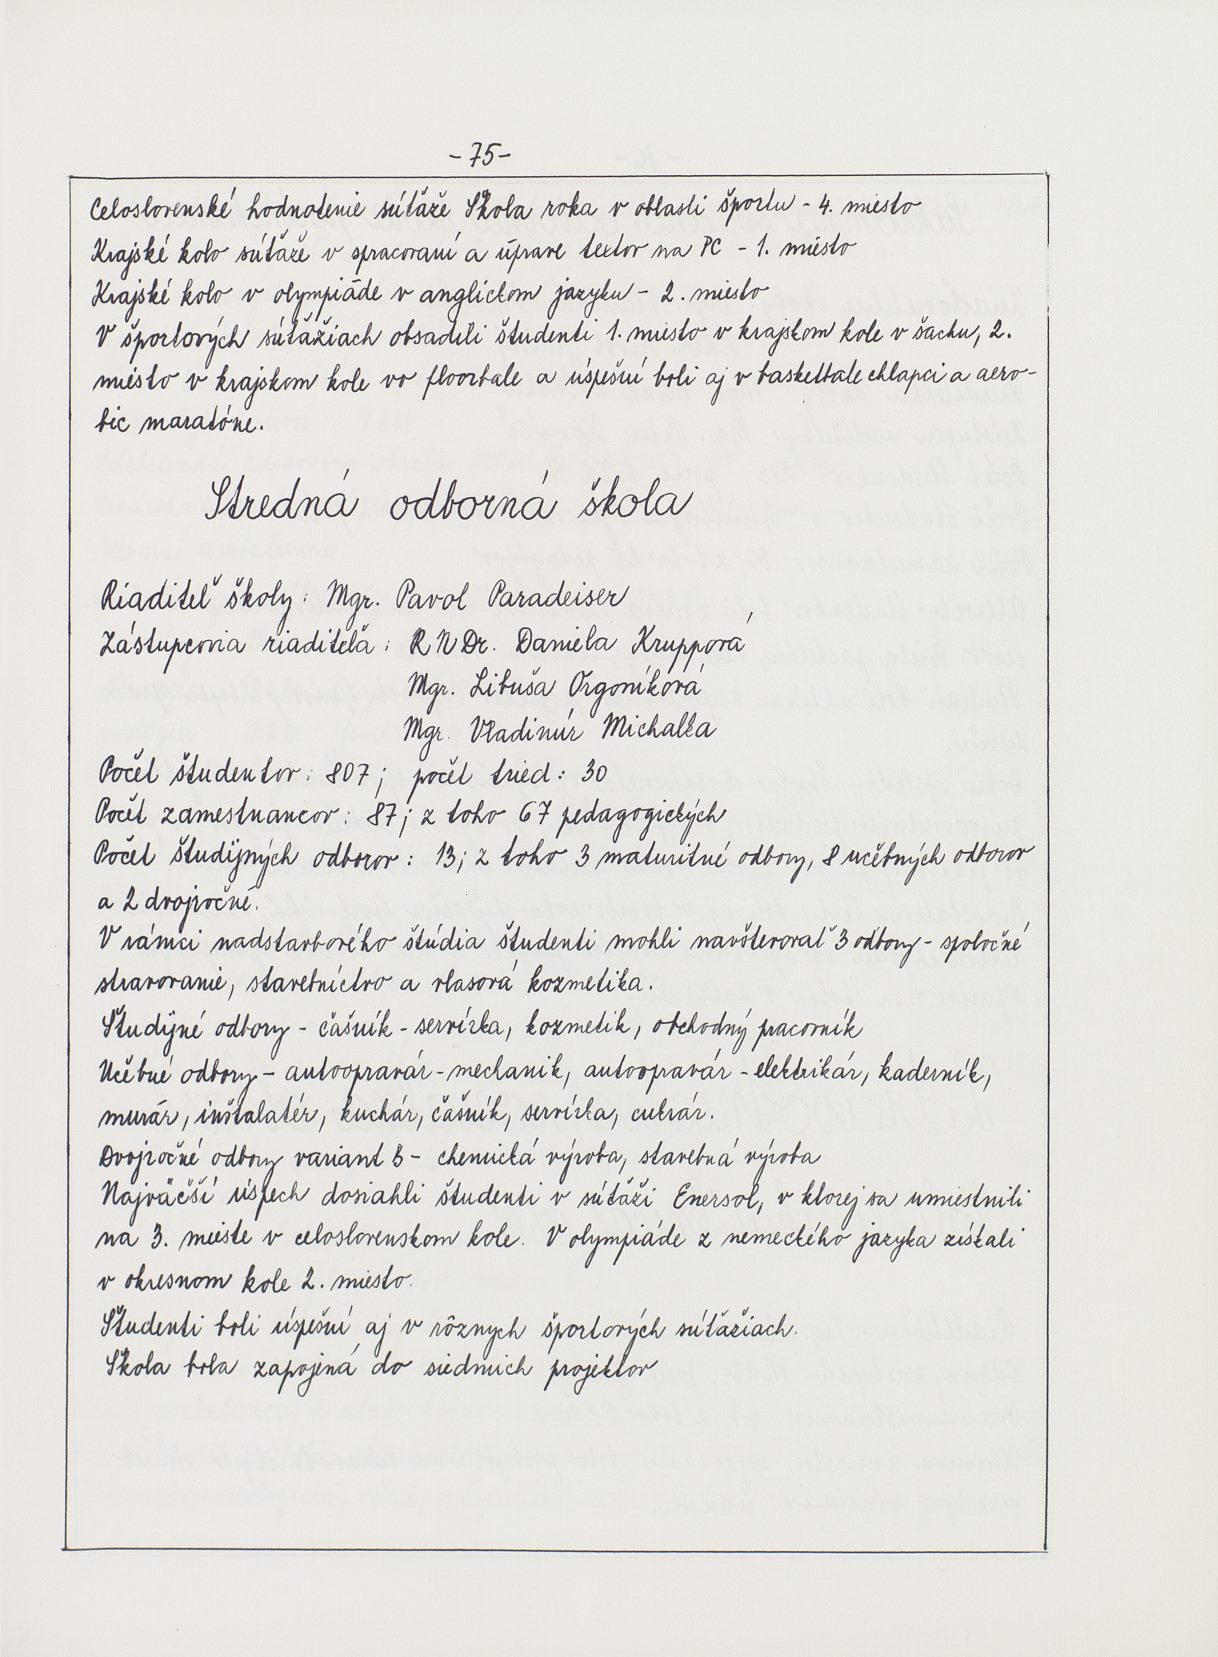 -75-
Celoslovenské hodnotenie súťaže Škola roka v oblasti športu - 4. miesto
Krajské kolo súťaže v spracovaní a úprave textov na PC - 1. miesto
Krajské kolo v olympiáde v anglickom jazyku - 2. miesto
V športových súťažiach obsadili študenti 1. miesto v krajskom kole v šachu, 2.
miesto v krajskom kole vo floorbale a úspešní boli aj v basketbale chlapci a aero-
bic maratóne.
Stredná odborná škola
Riaditeľ školy: Mgr. Pavol Paradeiser
Zástupcovia riaditeľa: RNDr. Daniela Kruppová
Mgr. Libuša Orgoníková
Mgr. Vladimír Michalka
Počet študentov: 807; počet tried: 30
Počet zamestnancov: 87; z toho 67 pedagogických
Počet študijných odborov: 13; z toho 3 maturitné odbory, 8 učebných odborov
a 2 dvojročné.
V rámci nadstavborého štúdia študenti mohli navštevovať 3 odbory - spoločné
stravovanie, stavebníctvo a vlasová kozmetika.
Študijné odbory - čašník - servírka, kozmetik, obchodný pracovník
Učebné odbory - autoopravár - mechanik, autoopravár - elektrikár, kaderník,
murár, inštalatér, kuchár, čašník, servírka, cukrár.
Dvojročné odbory variant B - chemická výroba, stavebná výroba
Najväčší úspech dosiahli študenti v súťaži Enersol, v ktorej sa umiestnili
na 3. mieste v celoslovenskom kole. V olympiáde z nemeckého jazyka získali
v okresnom kole 2. miesto.
Študenti boli úspešní aj v rôznych športových súťažiach.
Škola bola zapojená do siedmich projektov